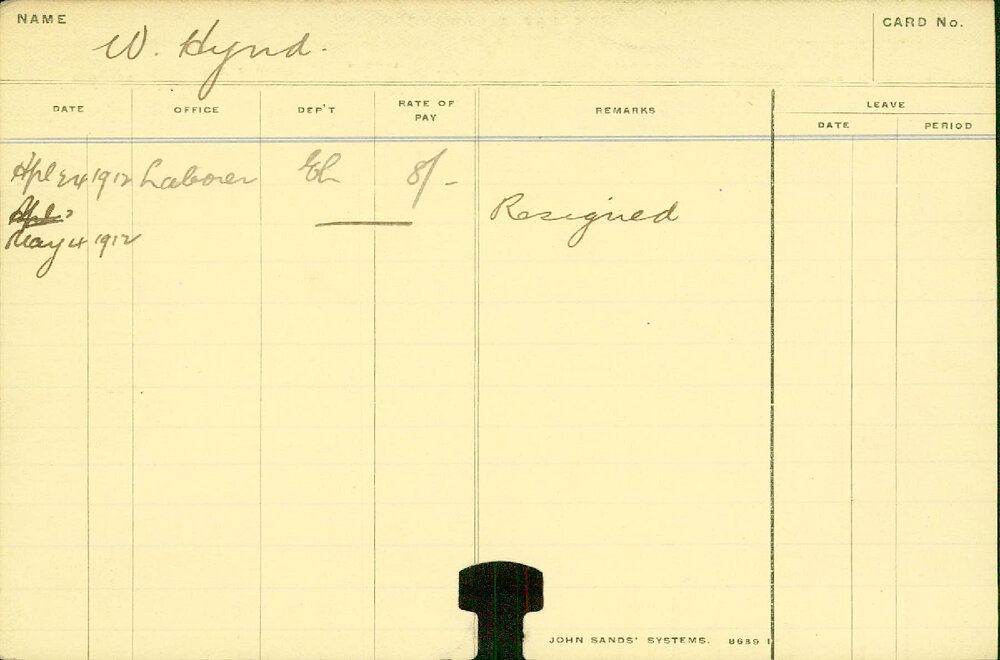 NAME
W. Hynd.
CARD No.
DATE OFFICE DEP'T RATE OF PAY REMARKS LEAVE
DATE PERIOD
Apl 24 1912 Laborer 8/-
Resigned
May 4 1912
JOHN SANDS' SYSTEMS. 8689